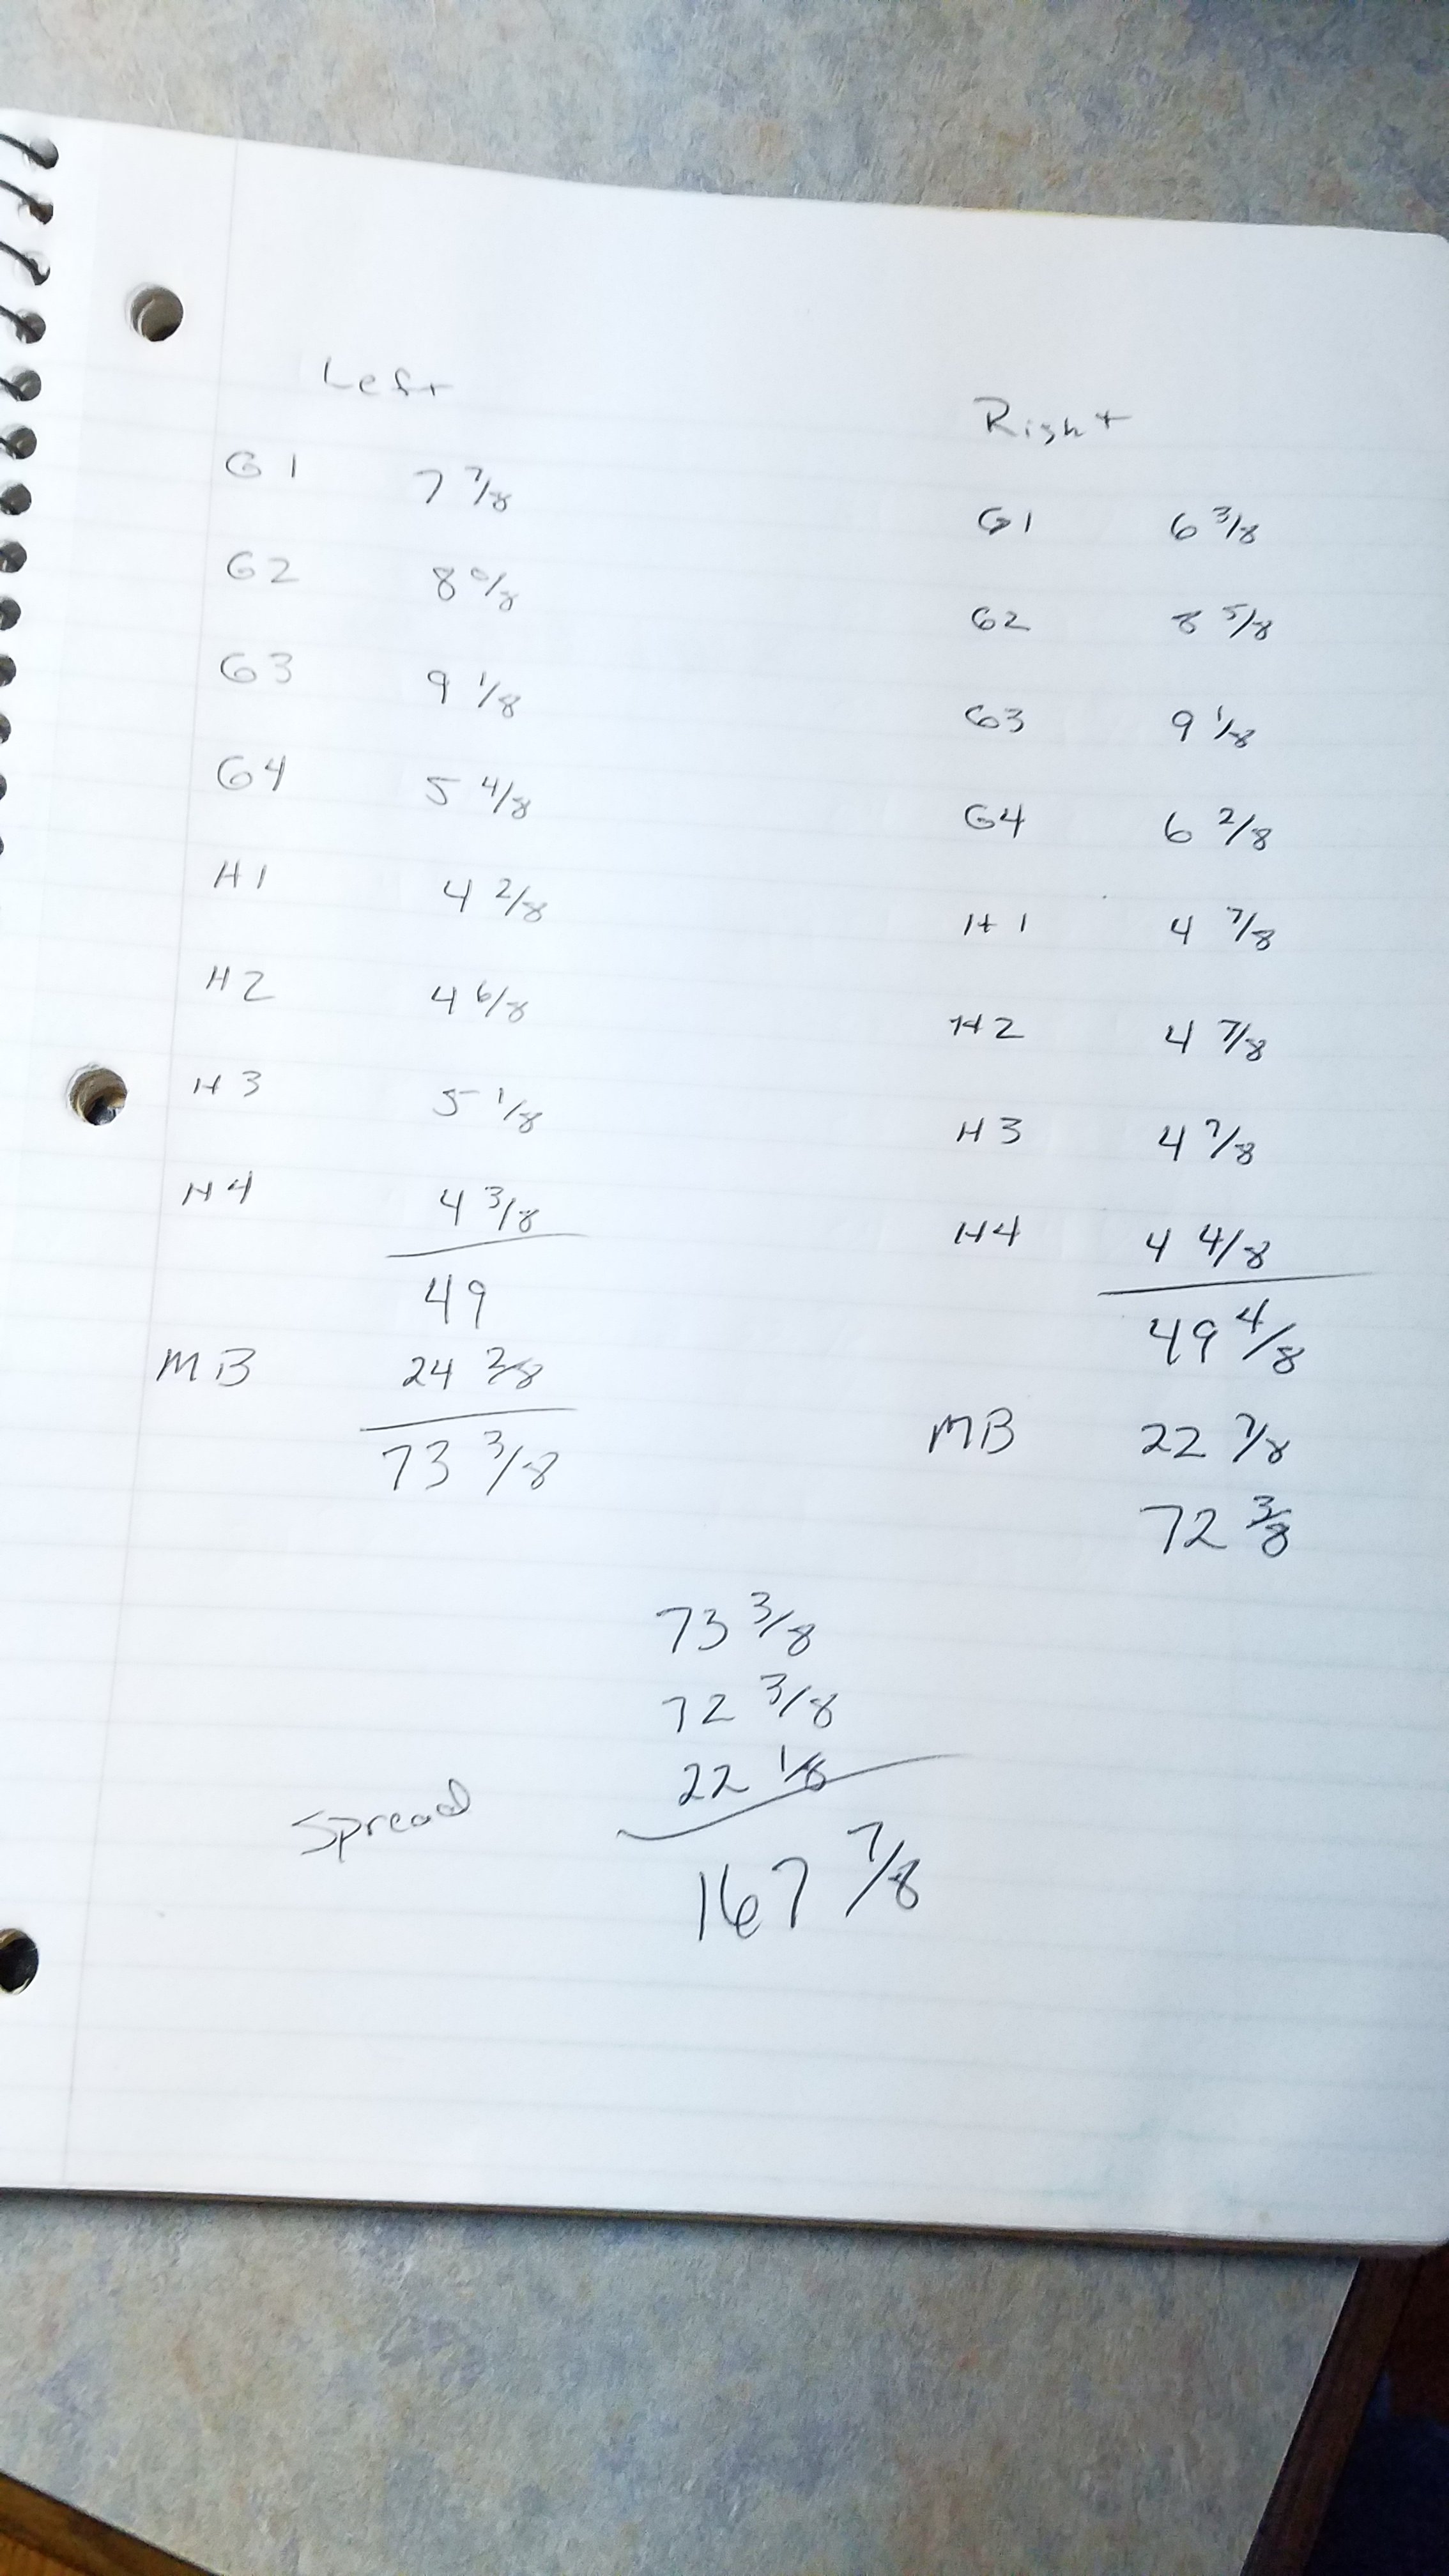 Left
G1 7 7/8
G2 8 0/8
G3 9 1/8
G4 5 4/8
H1 4 2/8
H2 4 6/8
H3 5 1/8
H4 4 3/8
49
MB 24 3/8
73 3/8
Right
G1 6 3/8
G2 8 5/8
G3 9 1/8
G4 6 2/8
H1 4 7/8
H2 4 7/8
H3 4 7/8
H4 4 4/8
49 4/8
MB 22 7/8
72 3/8
73 3/8
72 3/8
Spread 22 1/8
167 7/8